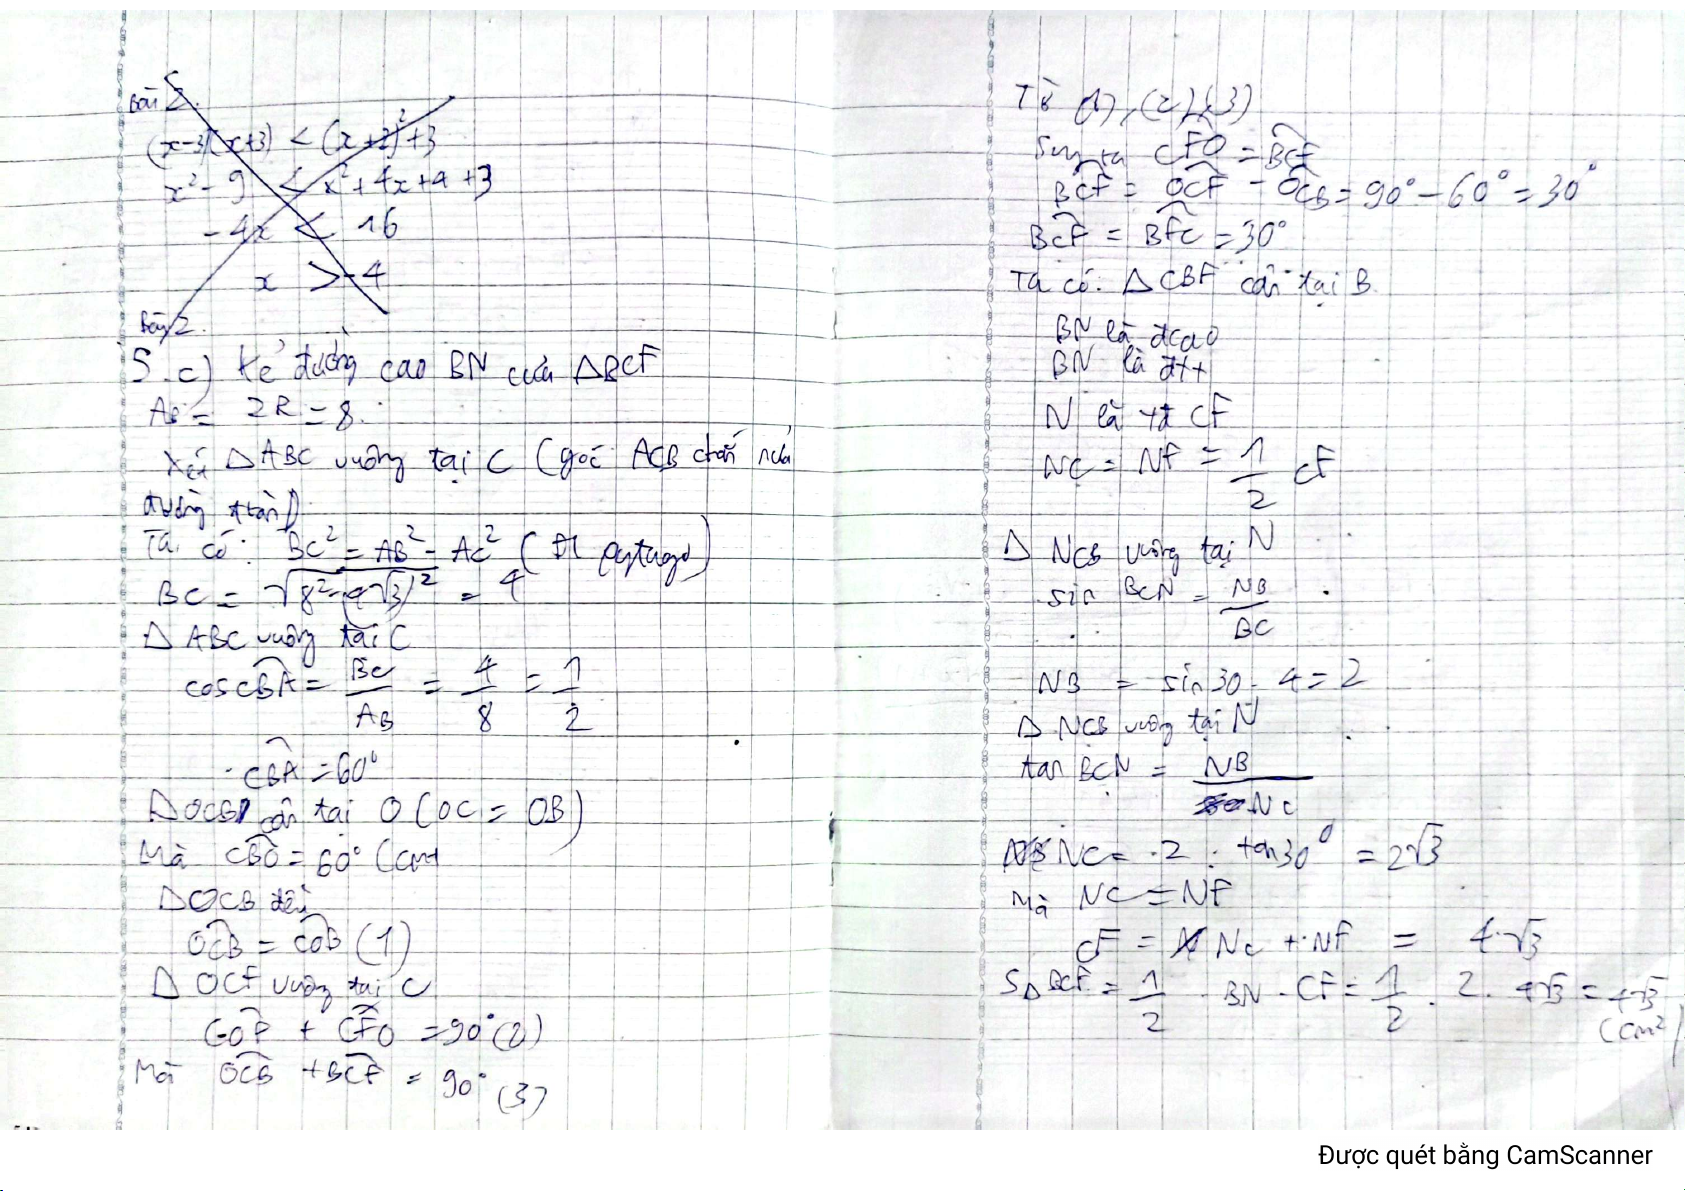 Bài 2.
(x-3)(x+3) < (x+2)²+3
x² - 9 < x² + 4x + 4 + 3
- 4x < 16
x > -4
Bài 2.
5.c) kẻ đường cao BN của ΔBCF
AB = 2R = 8.
Xét ΔABC vuông tại C (góc ACB chắn nửa
đường tròn)
Ta có: BC² = AB² - AC² (Đl pytago)
BC = √8²-(4√3)² = 4
Δ ABC vuông tại C
cos CBA = BC/AB = 4/8 = 1/2
CBA = 60°
ΔOCB cân tại O (OC = OB)
Mà CBO = 60° (cmt
ΔOCB đều
OCB = COB (1)
Δ OCF vuông tại C
COF + CFO = 90° (2)
Mà OCB + BCF = 90° (3)
Từ (1), (2), (3)
Suy ra CFO = BCF
BCF = OCF - OCB = 90° - 60° = 30°
BCF = BFC = 30°
Ta có: Δ CBF cân tại B.
BN là đcao
BN là đtt
N là tđ CF
NC = NF = 1/2 CF
Δ NCB vuông tại N
sin BCN = NB/BC
NB = sin 30 . 4 = 2
Δ NCB vuông tại N
tan BCN = NB/NC
NC = 2 : tan 30° = 2√3
Mà NC = NF
CF = NC + NF = 4.√3
SΔBCF = 1/2 . BN . CF = 1/2 . 2 . 4√3 = 4√3
(cm²)
Được quét bằng CamScanner